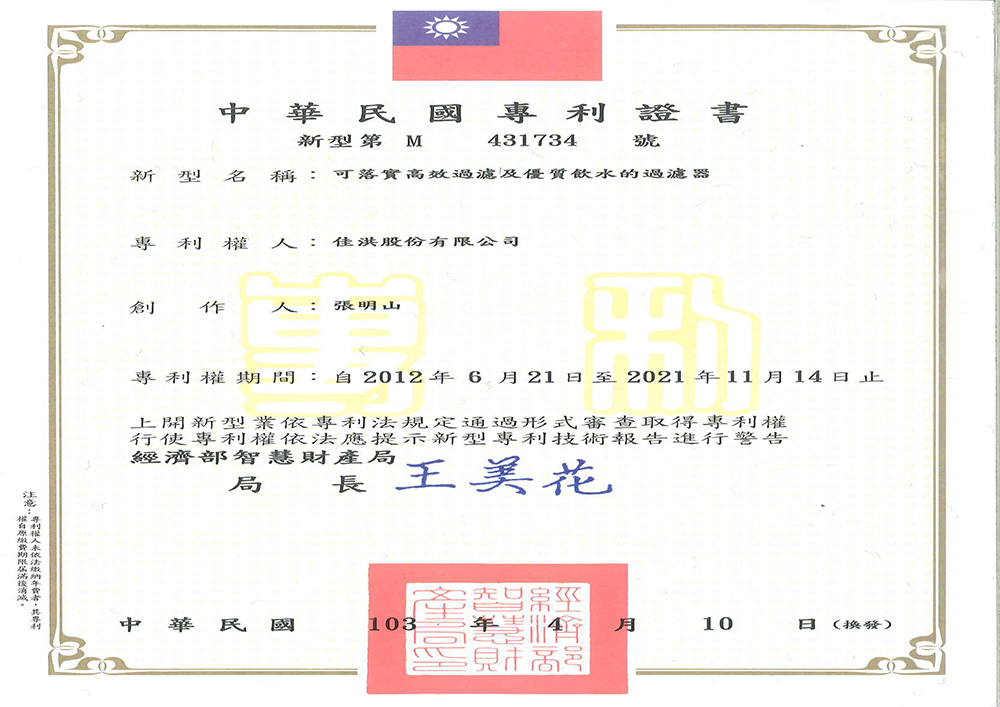 中華民國專利證書
新型第 M 431734 號
新型名稱：可落實高效過濾及優質飲水的過濾器
專利權人：佳洪股份有限公司
創作人：張明山
專利
專利權期間：自2012年 6 月21日至2021年11月14日止
上開新型業依專利法規定通過形式審查取得專利權
行使專利權依法應提示新型專利技術報告進行警告
經濟部智慧財產局
局長 王美花
注意：專利權人未依法繳納年費者，其專利
權自原繳費期限屆滿後消滅。
經濟部
智慧財
產局印
中華民國 103 年 4 月 10 日（換發）